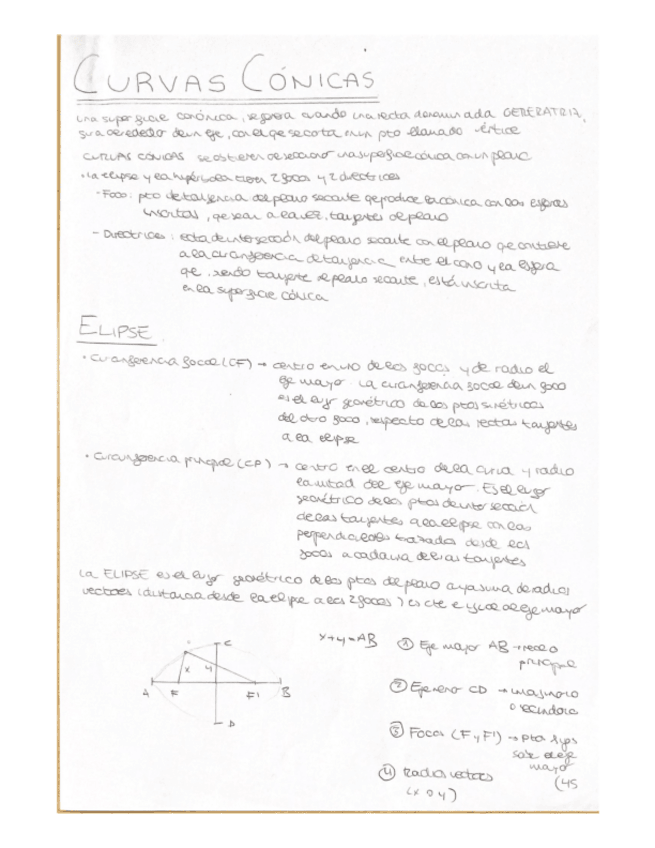 CURVAS CÓNICAS
una superficie canónica, se genera cuando una recta denominada GENERATRIZ,
gira alrededor de un eje, con el que se corta en un pto llamado vértice
CURVAS CÓNICAS se obtienen de seccionar una superficie cónica con un plano
• La elipse y la hipérbola tienen 2 focos y 2 directrices
- Foco: pto de tangencia del plano secante que produce la cónica con las esferas
inscritas, que sean a la vez, tangentes al plano
- Directrices: recta de intersección del plano secante con el plano que contiene
a la circunferencia de tangencia entre el cono y la esfera
que, siendo tangente al plano secante, está inscrita
en la superficie cónica
ELIPSE
• Circunferencia focal (CF) → centro en uno de los focos y de radio el
eje mayor. La circunferencia focal de un foco
es el lugar geométrico de los ptos simétricos
del otro foco, respecto de las rectas tangentes
a la elipse
• Circunferencia principal (CP) → centro en el centro de la curva y radio
la mitad del eje mayor. Es el lugar
geométrico de los ptos de intersección
de las tangentes a la elipse con las
perpendiculares trazadas desde los
focos a cada una de las tangentes
La ELIPSE es el lugar geométrico de los ptos del plano cuya suma de radios
vectores (distancia desde la elipse a los 2 focos) es cte e igual al eje mayor
x+y=AB
① Eje mayor AB → real o
principal
② Eje menor CD → imaginario
o secundario
③ Focos (F y F') → ptos fijos
sobre el eje
mayor
④ Radios vectores
(x o y)
(45
C
x
y
A
F
F'
B
D